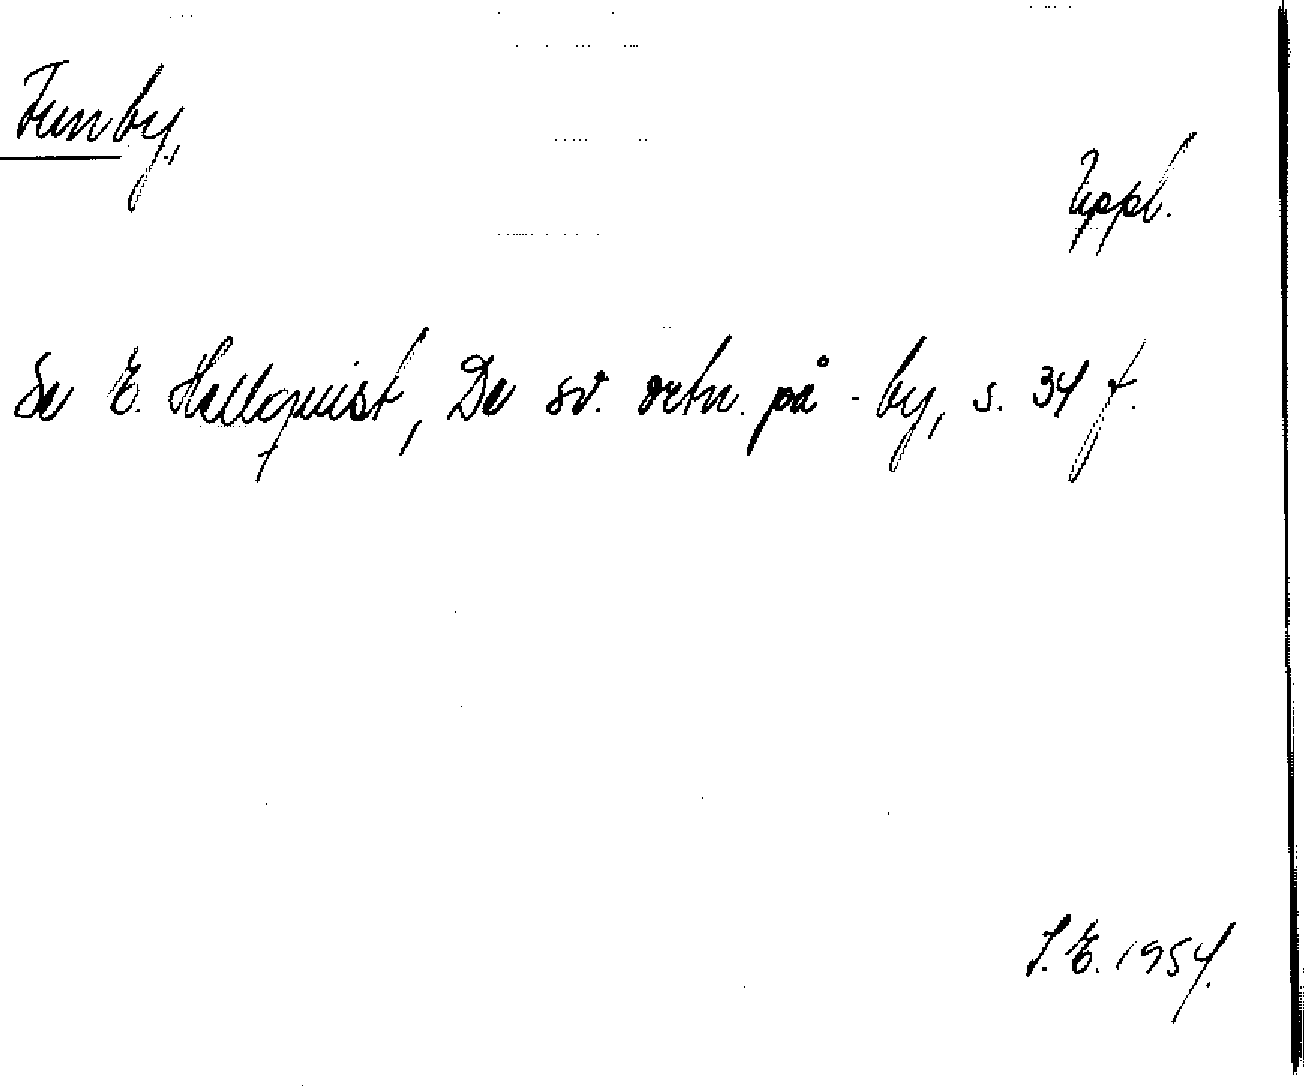 Funby,
Uppl.
Se E. Hellquist, De sv. ortn. på -by, s. 34 f.
I. E. 1954.